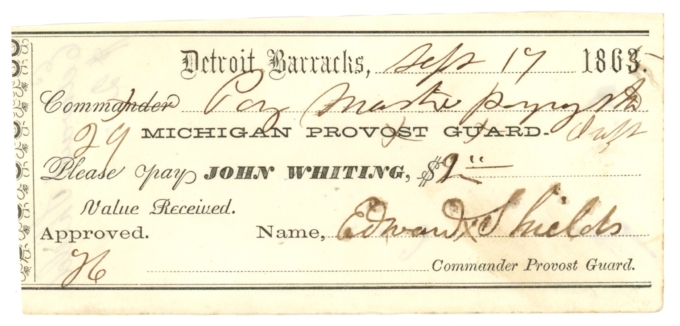 Detroit Barracks, Sept 17 1865.
Commander Pay Master paying the
29 MICHIGAN PROVOST GUARD-
Please pay JOHN WHITING, $2.00
Value Received.
Approved. Name, Edward Shields
Commander Provost Guard.